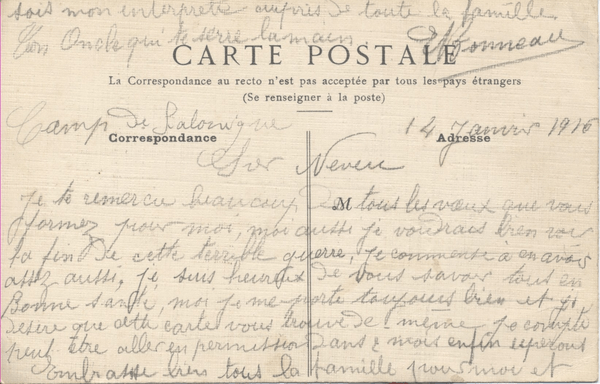 sois mon interprète auprès de toute la famille
Ton Oncle qui te serre la main
CARTE POSTALE
La Correspondance au recto n'est pas acceptée par tous les pays étrangers
(Se renseigner à la poste)
Camp de Salonique
14 Janvier 1916
Correspondance
Adresse
Cher Neveu
M
Je te remercie beaucoup de tous les vœux que vous
formez pour moi, moi aussi je voudrais bien voir
la fin de cette terrible guerre, je commence à en avoir
assez aussi, je suis heureux de vous savoir tous en
Bonne santé, moi je me porte toujours bien et je
désire que cette carte vous trouve de même, je compte
peut être aller en permission dans 2 mois enfin espérons
Embrasse bien tous la famille pour moi et